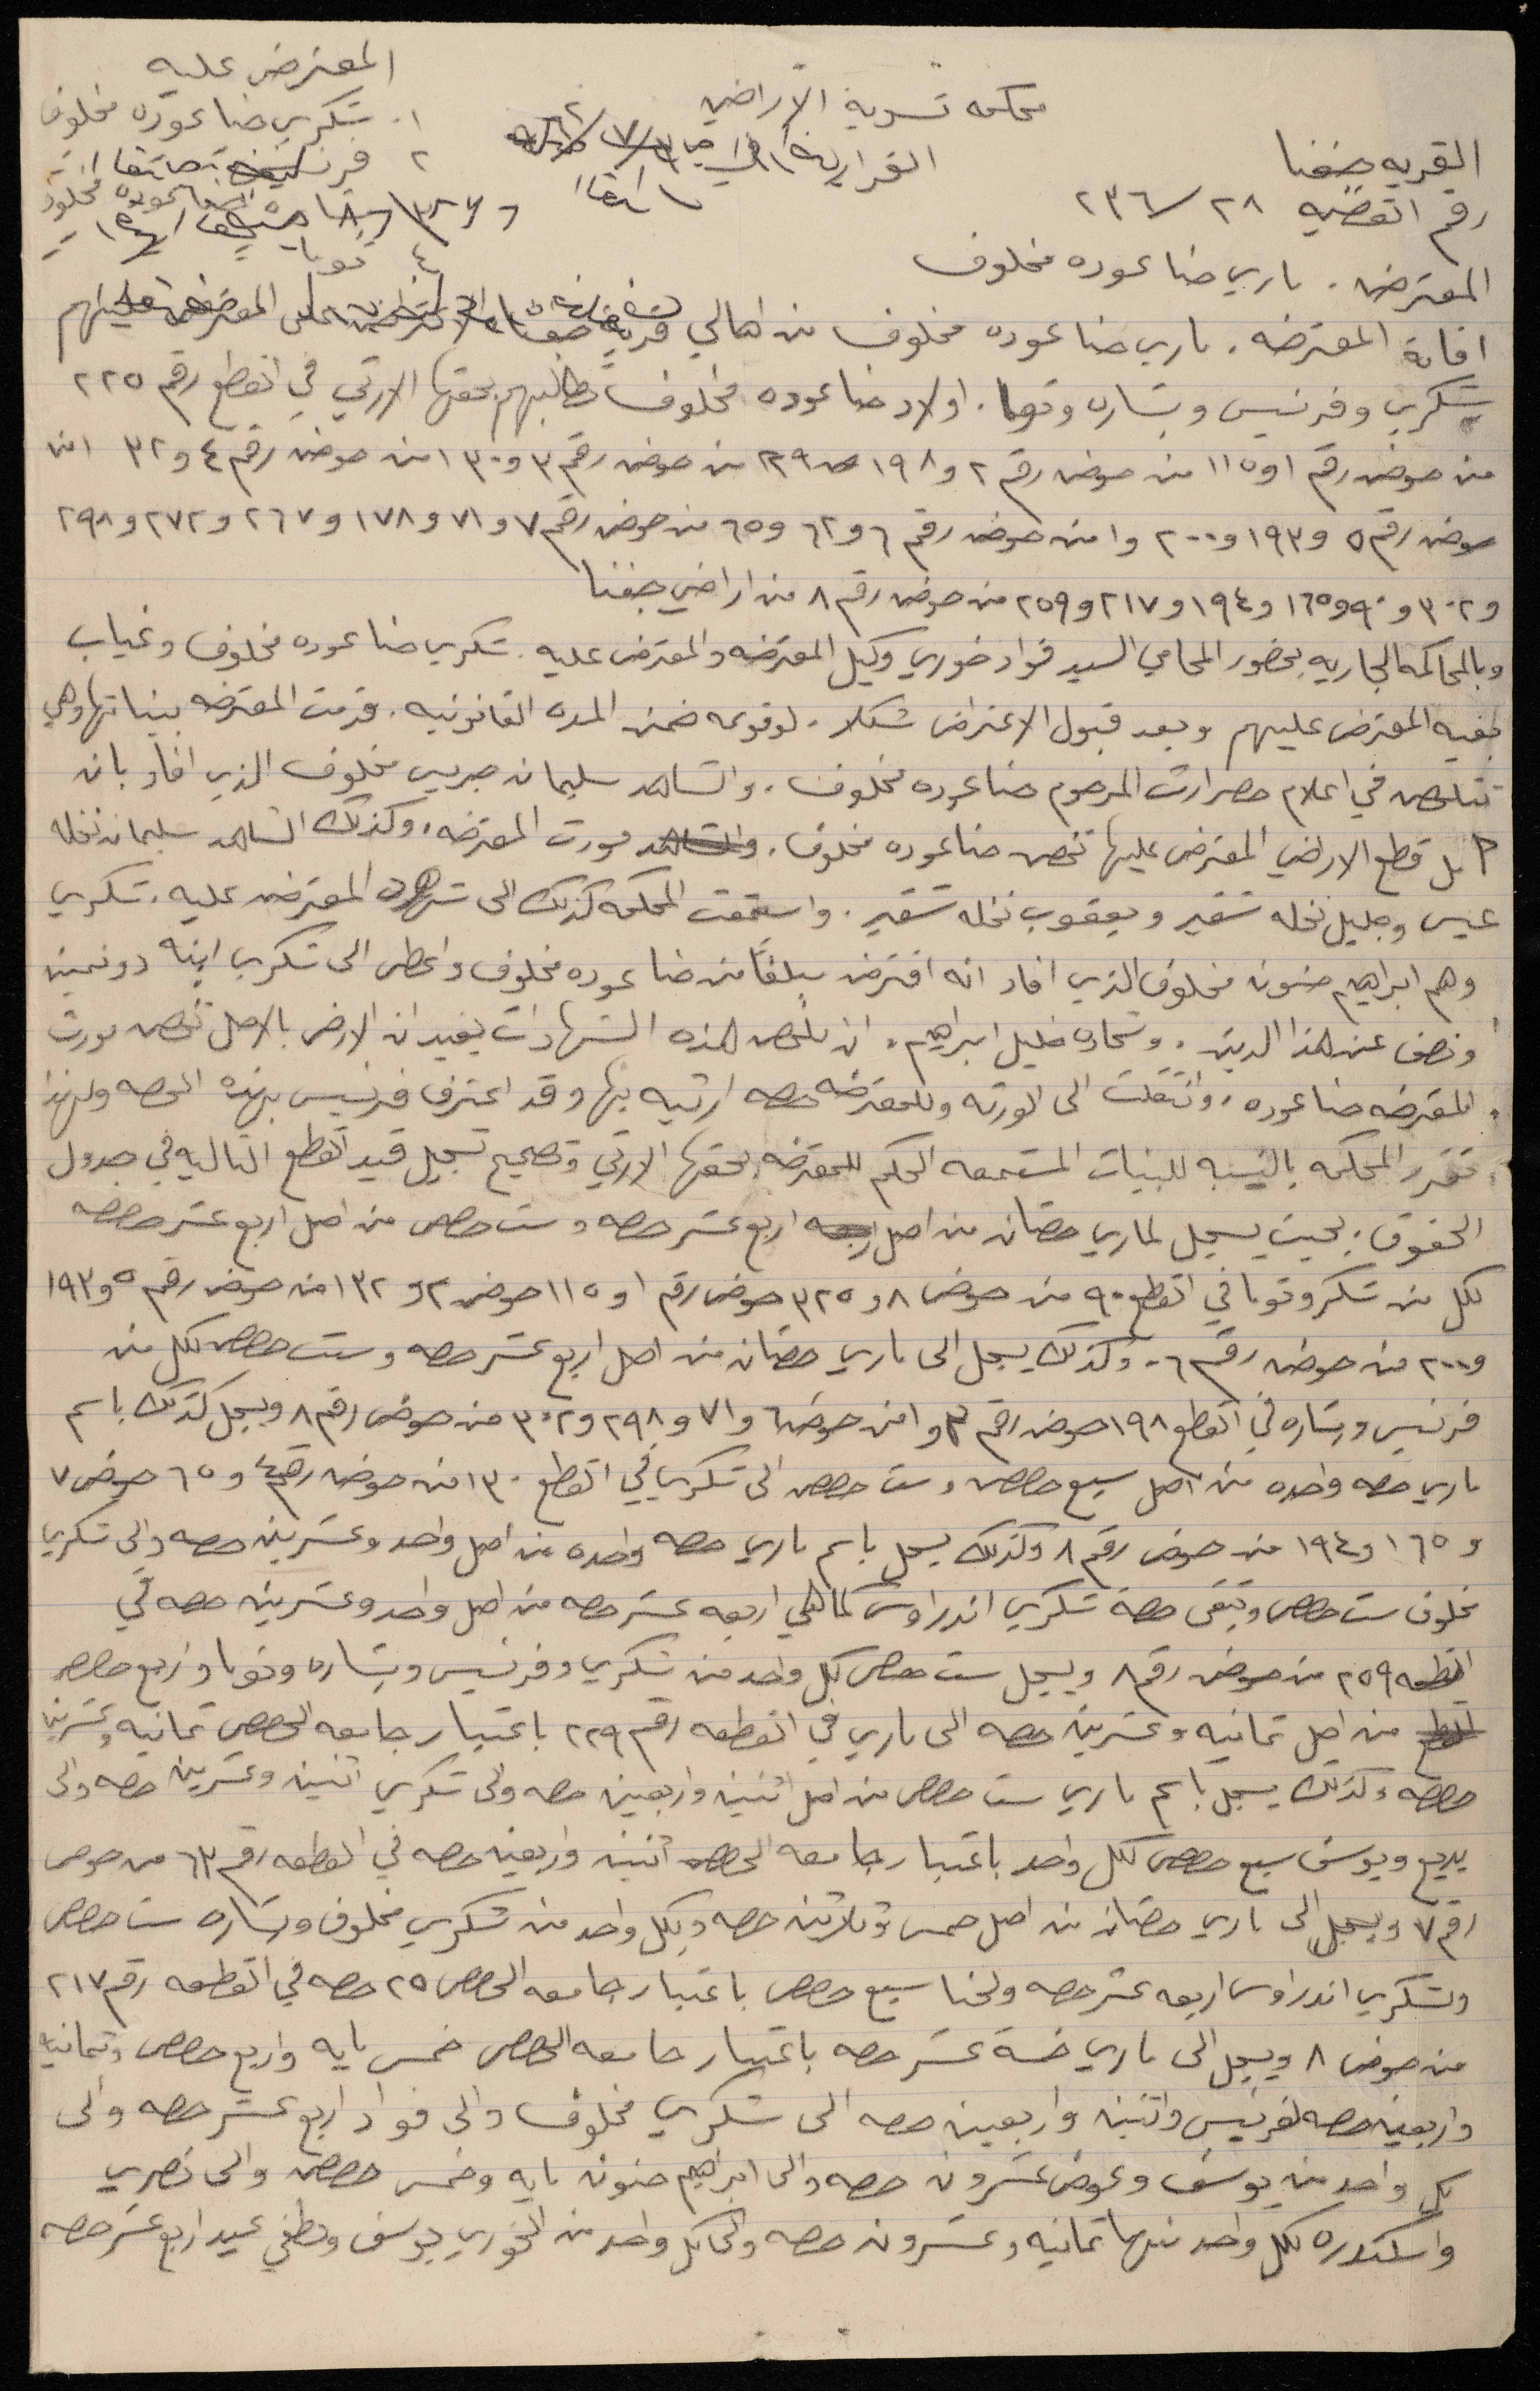 محكمه تسوية الاراضي
القريه جفنا
رقم القضيه ٢٨/٢٣٦
المعترض عليه
١. شكري حنا عوده مخلوف
٢ فرنسيس
٤ توما
المعترض . ماري حنا عوده مخلوف
اقامة المعترضه . ماري حنا عوده مخلوف من اهالي قرية جفنا الاعتراض على المعترض عليهم
شكري وفرنسيس وبشاره وتوما . اولاد حنا عوده مخلوف تطالبهم بحقها الارثي في القطع رقم ٢٢٥
من حوض رقم ١ و ١١٥ من حوض رقم ٢ و ١٩٨ و ٢٢٩ من حوض رقم ٣ و ١٣٠ من حوض رقم ٤ و ٣٢ من
حوض رقم ٥ و ١٩٣ و ٢٠٠ و ١ من حوض رقم ٦ و ٦٢ و ٦٥ من حوض رقم ٧ و ٧١ و ١٧٨ و ٢٦٧ و ٢٧٢ و ٢٩٨
و ٣٠٢ و ٩٠ و ١٦٥ و ١٩٤ و ٢١٧ و ٢٥٩ من حوض رقم ٨ من اراضي جفنا
وبالمحاكمه الجاريه بحضور المحامي السيد فواد خوري وكيل المعترضه والمعترض عليه . شكري حنا عوده مخلوف وغياب
بقيه المعترض عليهم وبعد قبول الاعتراض شكلا . لوقوعه ضمن المده القانونيه . قدمت المعترضه بيناتها وهي
تتلخص في اعلام حصر ارث المرحوم حنا عوده مخلوف . والشاهد سليمان جريس مخلوف الذي افاد بان
كل قطع الاراضي المعترض عليها تخص حنا عوده مخلوف . مورث المعترضه . وكذلك الشاهد سليمان نخله
عيس وجليل نخله شقير ويعقوب نخله شقير . واستمعت المحكمه كذلك الى شهود المعترض عليه . شكري
وهم ابراهيم حنون مخلوف الذي افاد انه اقترض مبلغا من حنا عوده مخلوف واعطى الى شكري ابنه دونمين
ونصف عن هذا الدين . وشحاده خليل ابراهيم . ان ملخص هذه الشهادات يفيد ان الارض بالاصل تخص مورث
المعترضه حنا عوده . وانتقلت الى الورثه وللمعترضه حصه ارثيه بها وقد اعترف فرنسيس بهذه الحصه ولهذا
تقرر المحكمه بالنسبه للبينات المستمعه الحكم للمعترضه بحقها الارثي وتصحيح تسجيل قيد القطع التاليه في جدول
الحقوق . بحيث يسجل لماري حصتان من اصل اربع عشر حصه و ست حصص من اصل اربع عشر حصه
لكل من شكر وتوما في القطع ٩٠ من حوض ٨ و ٣٢٥ حوض رقم ١ و ١١٥ حوض ٢ و ١٣٢ من حوض رقم ٥ و ١٩٣
و ٢٠٠ من حوض رقم ٦ . وكذلك يسجل الى ماري حصتان من اصل اربع عشر حصه وست حصص لكل من
فرنسيس وبشاره في القطع ١٩٨ حوض رقم ٣ و ١ من حوض ٦ و ٧١ و ٢٩٨ و ٣٠٢ من حوض رقم ٨ ويسجل كذلك باسم
ماري حصه واحده من اصل سبع حصص وست حصص الى شكري في القطع ١٣٠ من حوض رقم ٤ و ٦٥ حوض ٧
و ١٦٥ و ١٩٤ من حوض رقم ٨ وكذلك يسجل باسم ماري حصه واحده من اصل واحد وعشرين حصه والى شكري
مخلوف ست حصص وتبقى حصة شكري اندراوس كما هي اربعه عشر حصه من اصل واحد وعشرين حصه في
القطعه ٢٥٩ من حوض رقم ٨ ويسجل ست حصص لكل واحد من شكري وفرنسيس وبشاره وتوما واربع حصص
من اصل ثمانيه وعشرين حصه الى ماري في القطعه رقم ٢٢٩ باعتبار جامعه الحصص ثمانيه وعشرين
حصه وكذلك يسجل باسم ماري ست حصص من اصل اثنين واربعين حصه والى شكري اثنين وعشرين حصه والى
بديع ويوسف سبع حصص لكل واحد باعتبار جامعه الحصص اثنين واربعين حصه في القطعه رقم ٦٣ من حوض
رقم ٧ ويسجل الى ماري حصتان من اصل خمس وثلاثين حصه ولكل واحد من شكري مخلوف وبشاره ست حصص
وشكري اندراوس اربعه عشر حصه ولحنا سبع حصص باعتبار جامعه الحصص ٣٥ حصه في القطعه رقم ٢١٧
من حوض ٨ ويسجل الى ماري خمسة عشر حصه باعتبار جامعه الحصص خمس مايه واربع حصص وثمانيه
واربعين حصه لفرنسيس واثنين واربعين حصه الى شكري مخلوف والى فواد اربع عشر حصه والى
كل واحد من يوسف وعوض عشرون حصه والى ابراهيم حنون مايه وخمس حصص والى نصري
واسكندره لكل واحد منها ثمانيه وعشرون حصه والى كل واحد من الخوري يوسف ولطفي عيد اربع عشر حصه